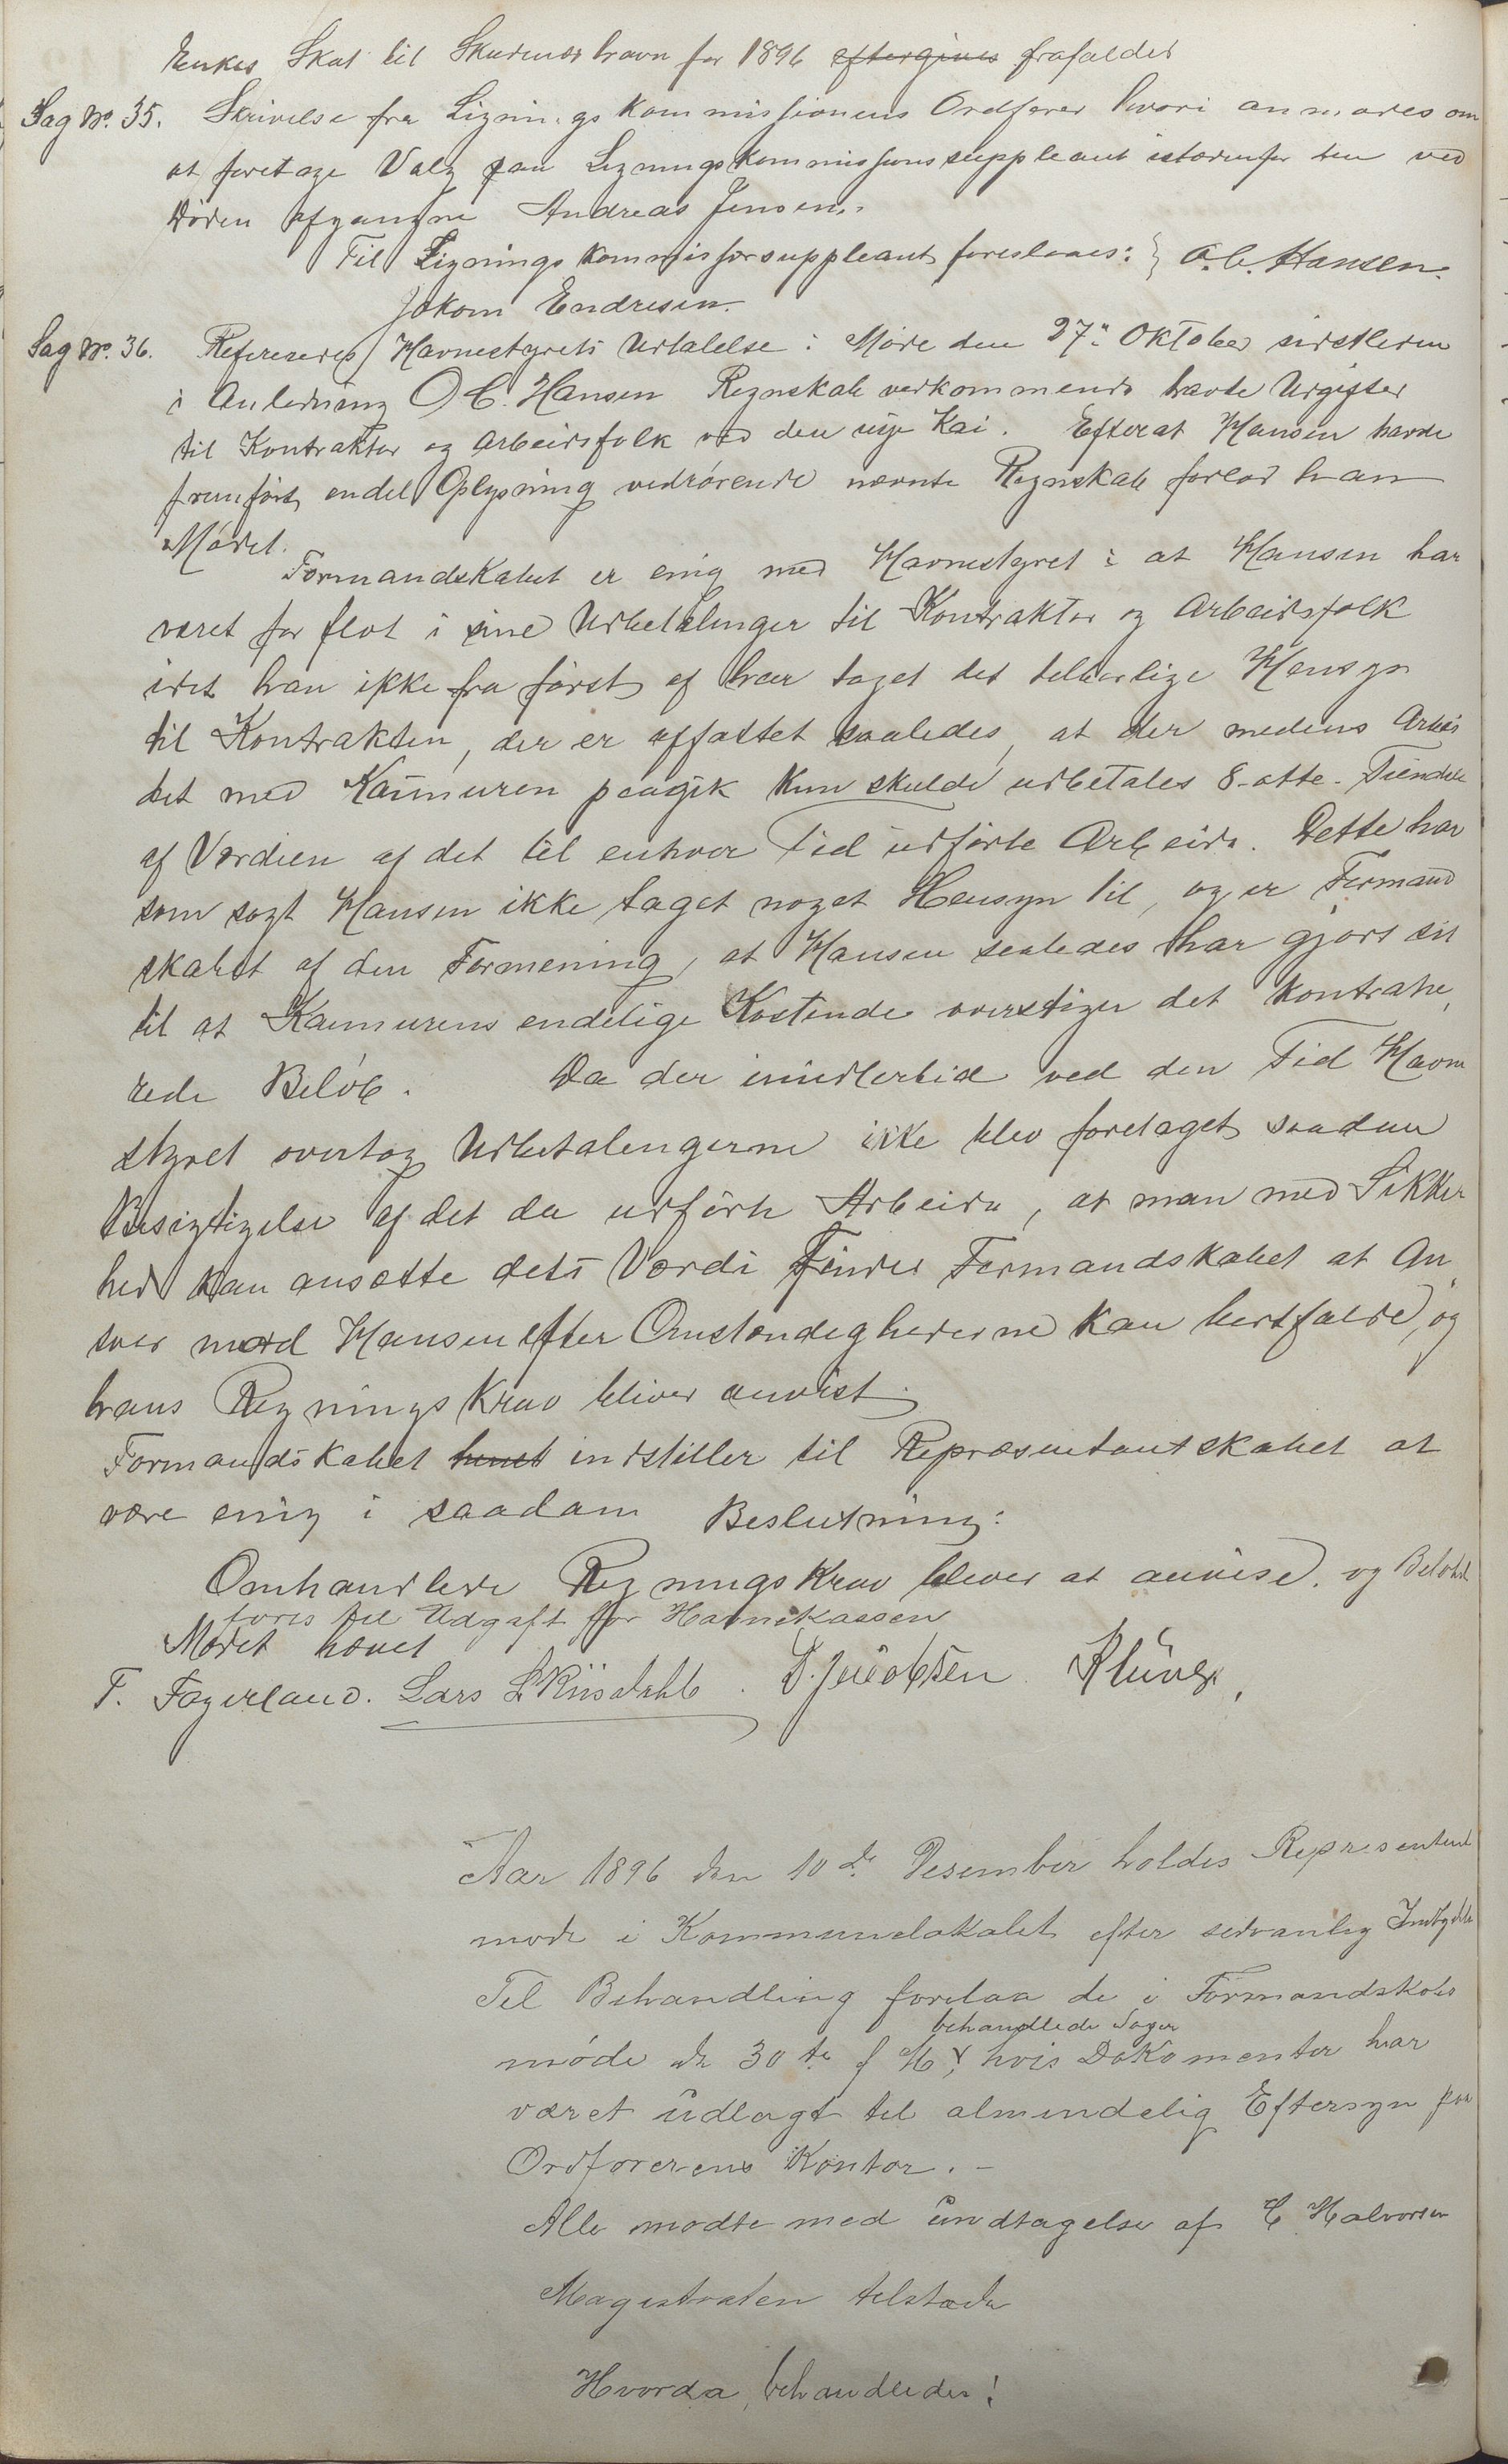 Enkes Skat til Skudenæshavn for 1896 eftergives frafaldes
Sag No. 35. Skrivelse fra Ligningskommissionens Ordfører hvori anmodes om
at foretage Valg paa Ligningskommissionssuppleant istedenfor den ved
Døden afgangne Andreas Jensen.
Til Ligningskommissorsuppleant foreslaaes: O. C. Hansen.
Jakom Endresen.
Sag No. 36. Refereredes Havnestyrets Udtalelse i Møde den 27de Oktober sidstleden
i Anledning O C. Hansen Regnskab vedkommende havte Udgifter
til Kontraktør og Arbeidsfolk ved den nye Kai. Efterat Hansen havde
fremført endel Oplysning vedrørende nævnte Regnskab forlod han
Mødet.
Formandskabet er enig med Havnestyret i at Hansen har
været for flot i sine Udbetalinger til Kontraktør og Arbeidsfolk
idet han ikke fra først af har taget det tilbørlige Hensyn
til Kontrakten, der er affattet saaledes, at der medens Arbei
det med Kaimuren paagik kun skulde udbetales 8-otte-Tiendele
af Værdien af det til enhver Tid udførte Arbeide. Dette har
som sagt Hansen ikke taget noget Hensyn til, og er Formand
skabet af den Formening, at Hansen saaledes har gjort sit
til at Kaimurens endelige Kostende overstiger det kontrahe
rede Beløb. Da der imidlertid ved den Tid Havne
styret overtog Udbetalingerne ikke blev foretaget saadan
Besigtigelse af det da udførte Arbeide, at man med Sikker
hed kan ansætte dets Værdi finder Formandskabet at An
svar mod Hansen efter Omstændighederne kan bortfalde, og
hans Regningskrav bliver anvist.
Formandskabet indstiller til Repræsentantskabet at
være enig i saadan Beslutning:
Omhandlede Regningskrav bliver at anvise. og Beløbet
føres til Udgift for Havnekassen
Mødet hævet
T. Fagerland. Lars L Riisdahl. D. Jacobsen
Aar 1896 den 10de Desember holdes Representant
møde i Kommunelokalet efter sedvanlig Indbydelse
Til Behandling forelaa de i Formandskabs
behandlede Sager
møde de 30te f M, hvis Dokomenter har
været udlagt til almindelig Eftersyn paa
Ordførerens Kontor.-
Alle mødte med undtagelse af E Halvorsen
Magistraten tilstæde
Hvorda behandledes!